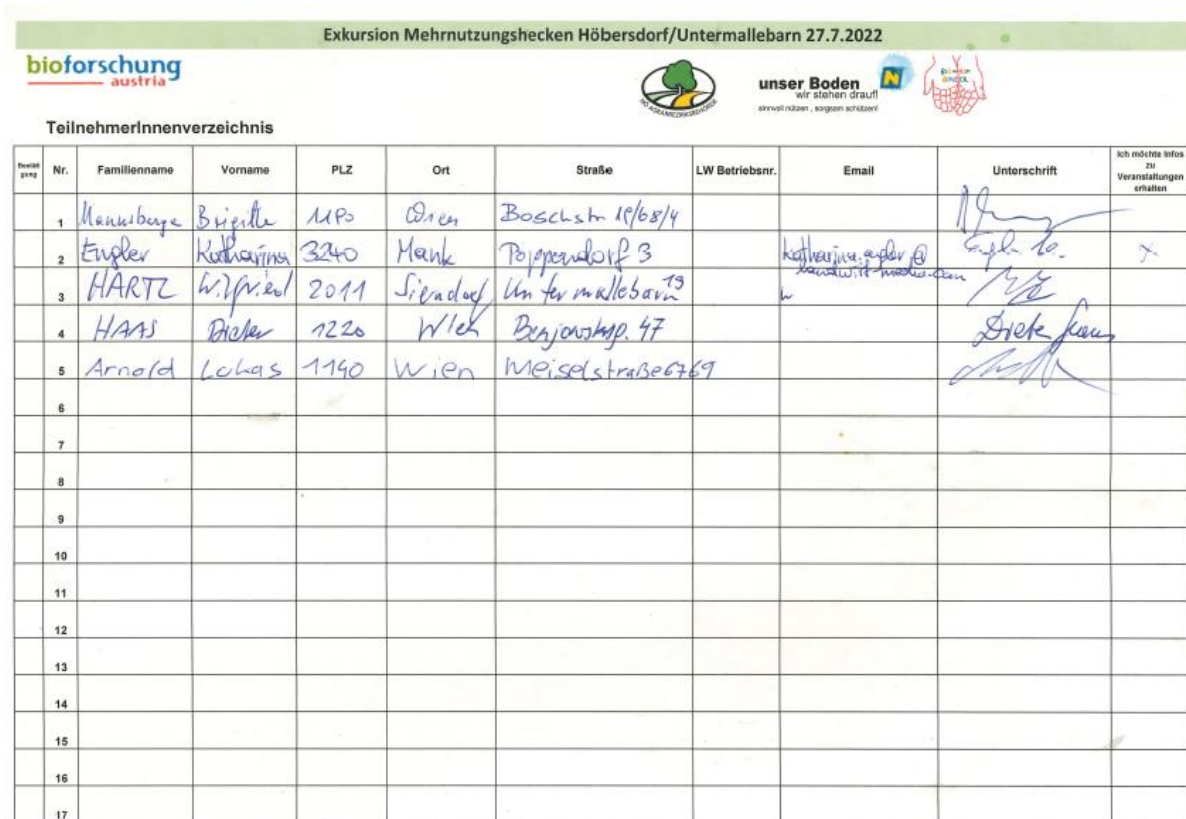 Exkursion Mehrnutzungshecken Höbersdorf/Untermallebarn 27.7.2022
bioforschung
austria
NÖ AGRARBEZIRKSBEHÖRDE
unser Boden
wir stehen drauf!
sinnvoll nützen, sorgsam schützen!
TeilnehmerInnenverzeichnis
Bestätigung Nr. Familienname Vorname PLZ Ort Straße LW Betriebsnr. Email Unterschrift Ich möchte Infos zu Veranstaltungen erhalten
1 Brigitte Wien
2 Engler Katharina 3240 Mank Poppendorf 3 katharina.engler@ x
landwirt-media.com
3 HARTL Wilfried 2011 Sierndorf Untermallebarn 19
4 HAAS Dieter 1220 Wien 47 Dieter Haas
5 Arnold Lukas 1140 Wien Meiselstraße 67 69
6
7
8
9
10
11
12
13
14
15
16
17